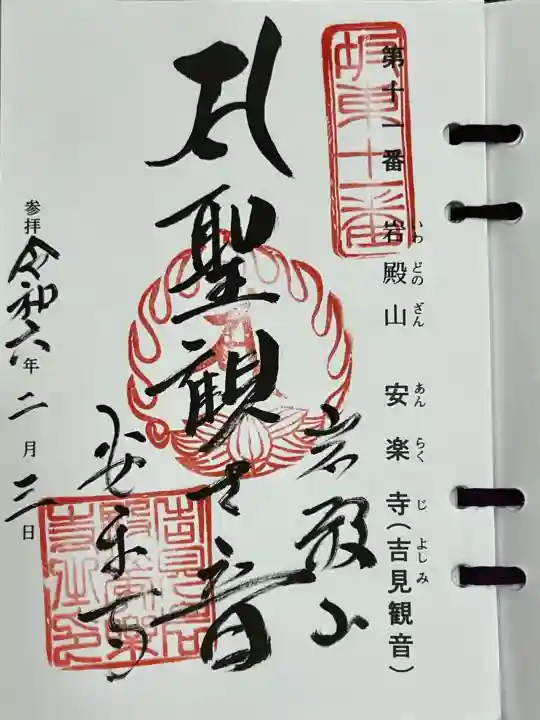 坂東十一番
第十一番 岩殿山 安楽寺(吉見観音)
いわ どの ざん あん らく じ よしみ
岩殿山
聖観世音
安楽寺
参拝 令和六年二月三日